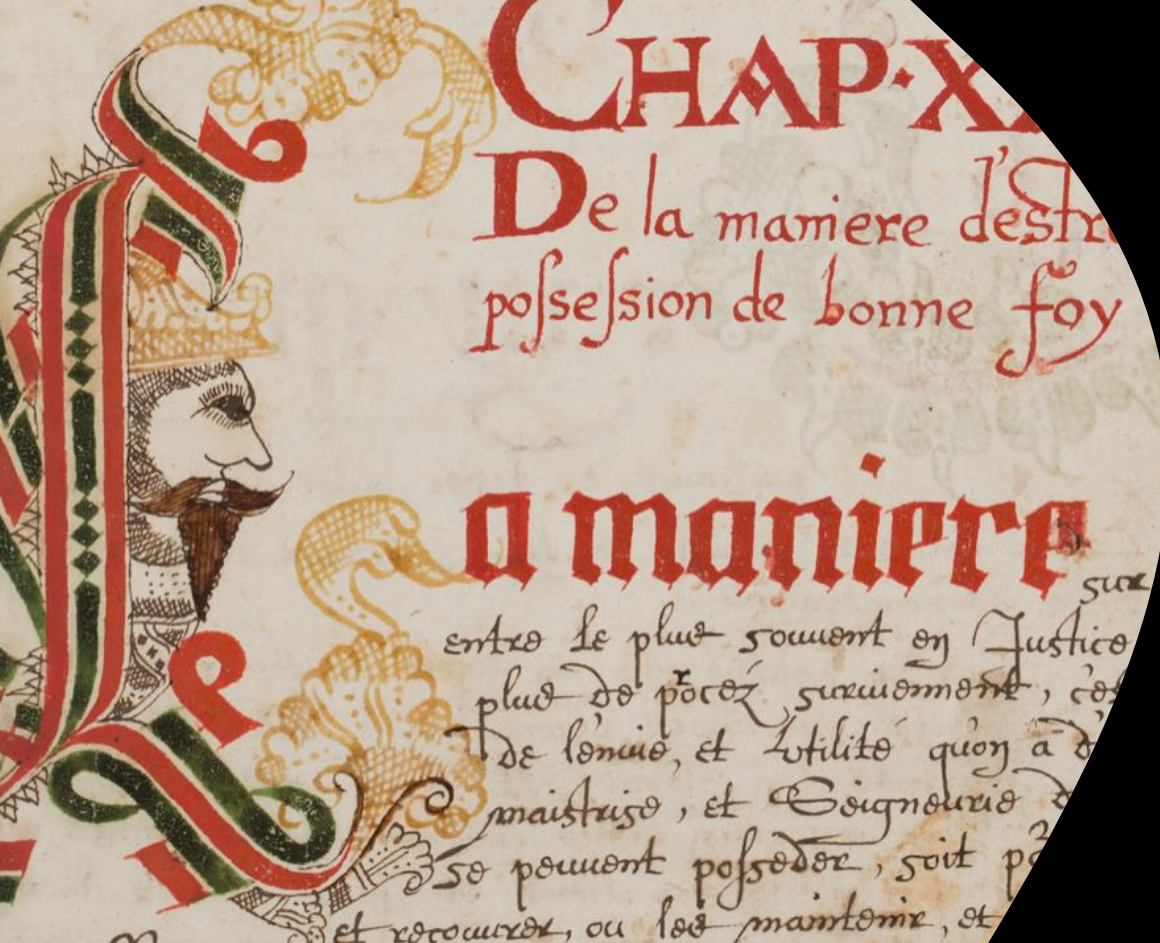 CHAP·X
De la maniere d'estre
possession de bonne foy
La maniere
sur
entre le plus souuent en Justice
plus de procéz suruiennent, c'est
de l'enuie, et Vtilité qu'on a
maistrise, et Seigneurie
se peuuent posseder, soit
et recouurer, ou les maintenir, et